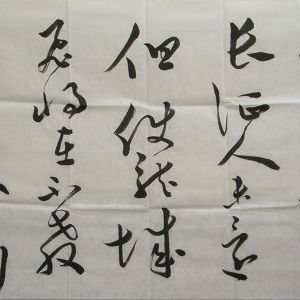 长征人未还
但使龙城
飞将在不教